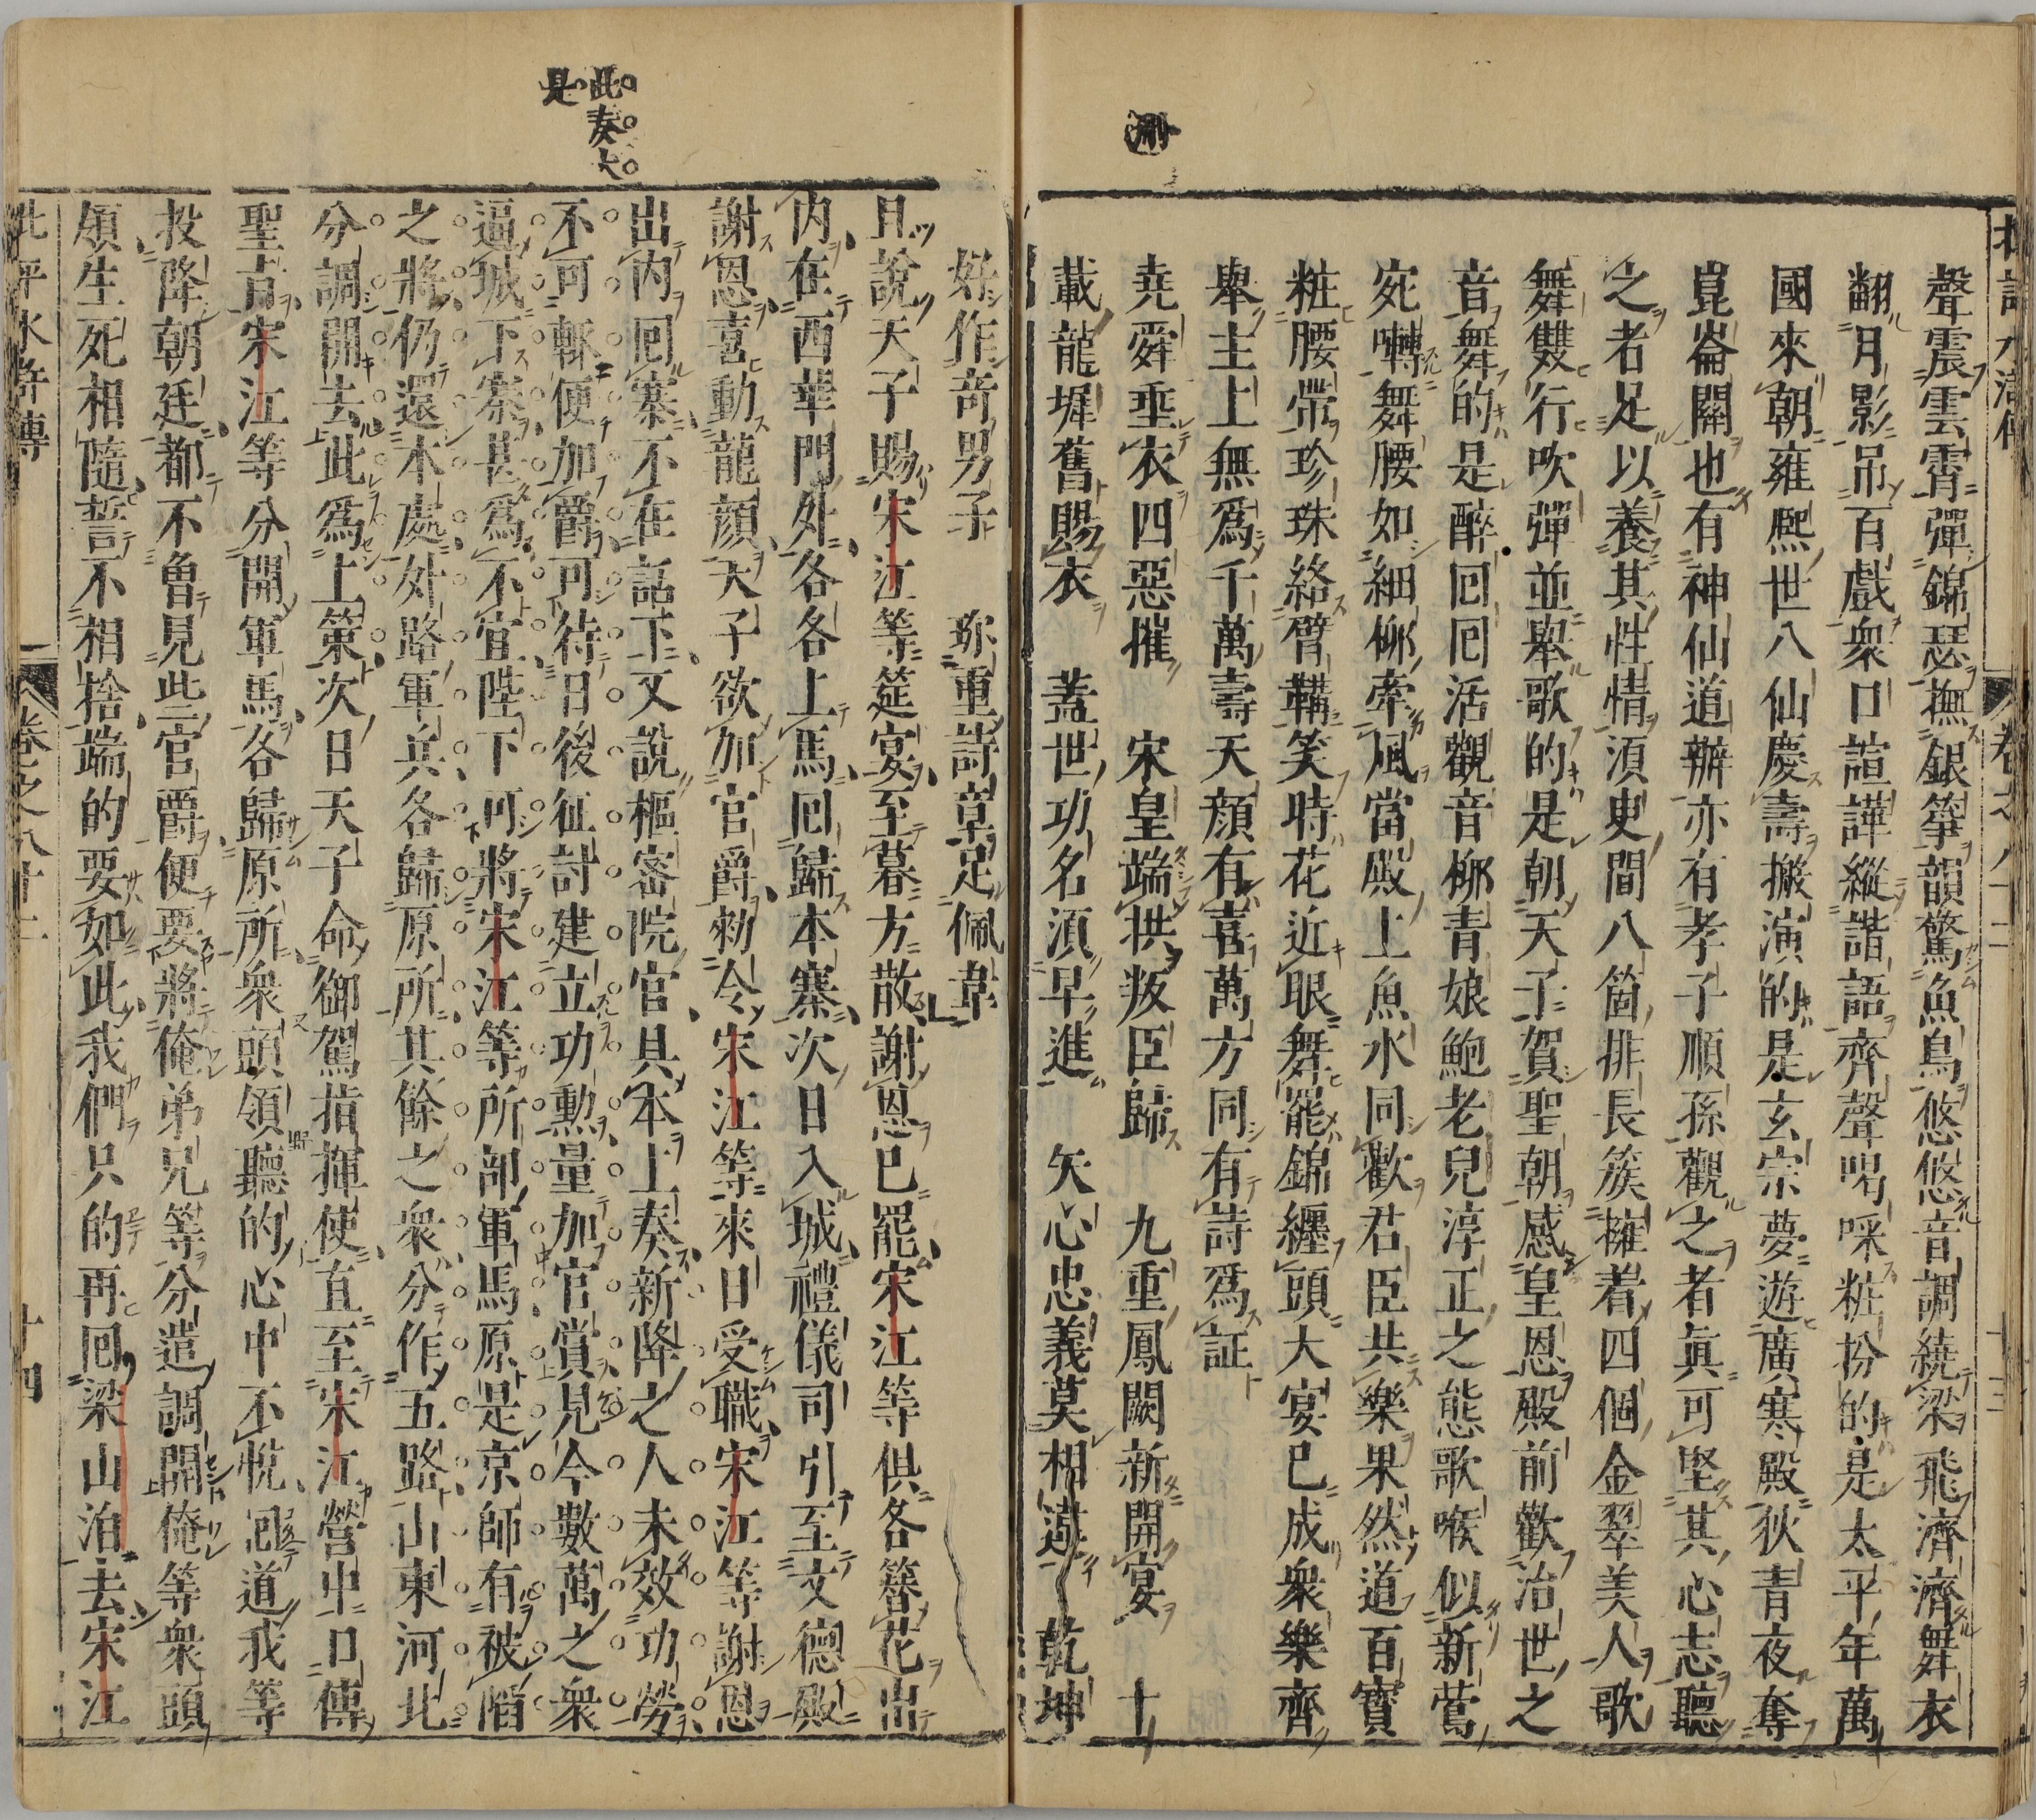 刪
聲震雲霄彈錦瑟撫銀箏韻驚魚鳥悠悠音調繞梁飛濟濟舞衣
翻月影吊百戲衆口諠譁縱諧語齊聲喝呆粧扮的是太平年萬
國來朝雍熙世八仙慶壽搬演的是玄宗夢遊廣寒殿狄青夜奪
崑崙關也有神仙道辦亦有孝子順孫觀之者眞可堅其心志聽
之者足以養其性情須臾間八箇排長簇擁着四個金翠美人歌
舞雙行吹彈並舉歌的是朝天子賀聖朝感皇恩殿前歡治世之
音舞的是醉回回活觀音栁青娘鮑老兒淳正之態歌喉似新鶯
宛囀舞腰如細栁牽風當殿上魚水同歡君臣共樂果然道百寶
粧腰帶珍珠絡臂鞲笑時花近眼舞罷錦纏頭大宴已成衆樂齊
舉主上無爲千萬壽天顔有喜萬方同有詩爲証
堯舜垂衣四惡摧　宋皇端拱叛臣歸　九重鳳闕新開宴　十
載龍墀舊賜衣　蓋世功名須早進　矢心忠義莫相違　乾坤
此奏大
是
好作奇男子　珎重詩章足佩韋
且說天子賜宋江等筵宴至暮方散謝恩已罷宋江等俱各簪花出
内在西華門外各各上馬回歸本寨次日入城禮儀司引至文德殿
謝恩喜動龍顔天子欲加官爵勑令宋江等來日受職宋江等謝恩
出内囘寨不在話下又說樞密院官具本上奏新降之人未效功勞
不可輒便加爵可待日後征討建立功勲量加官賞見今數萬之衆
逼城下寨甚爲不宜陛下可將宋江等所部軍馬原是京師有被陷
之將仍還本處外路軍兵各歸原所其餘之衆分作五路山東河北
分調開去此爲上策次日天子命御駕指揮使直至宋江營中口傳
聖旨宋江等分開軍馬各歸原所衆頭領聽的心中不悅囘道我等
投降朝廷都不曾見些官爵便要將俺弟兄等分遣調開俺等衆頭
領生死相隨誓不相捨端的要如此我們只的再囘梁山泊去宋江